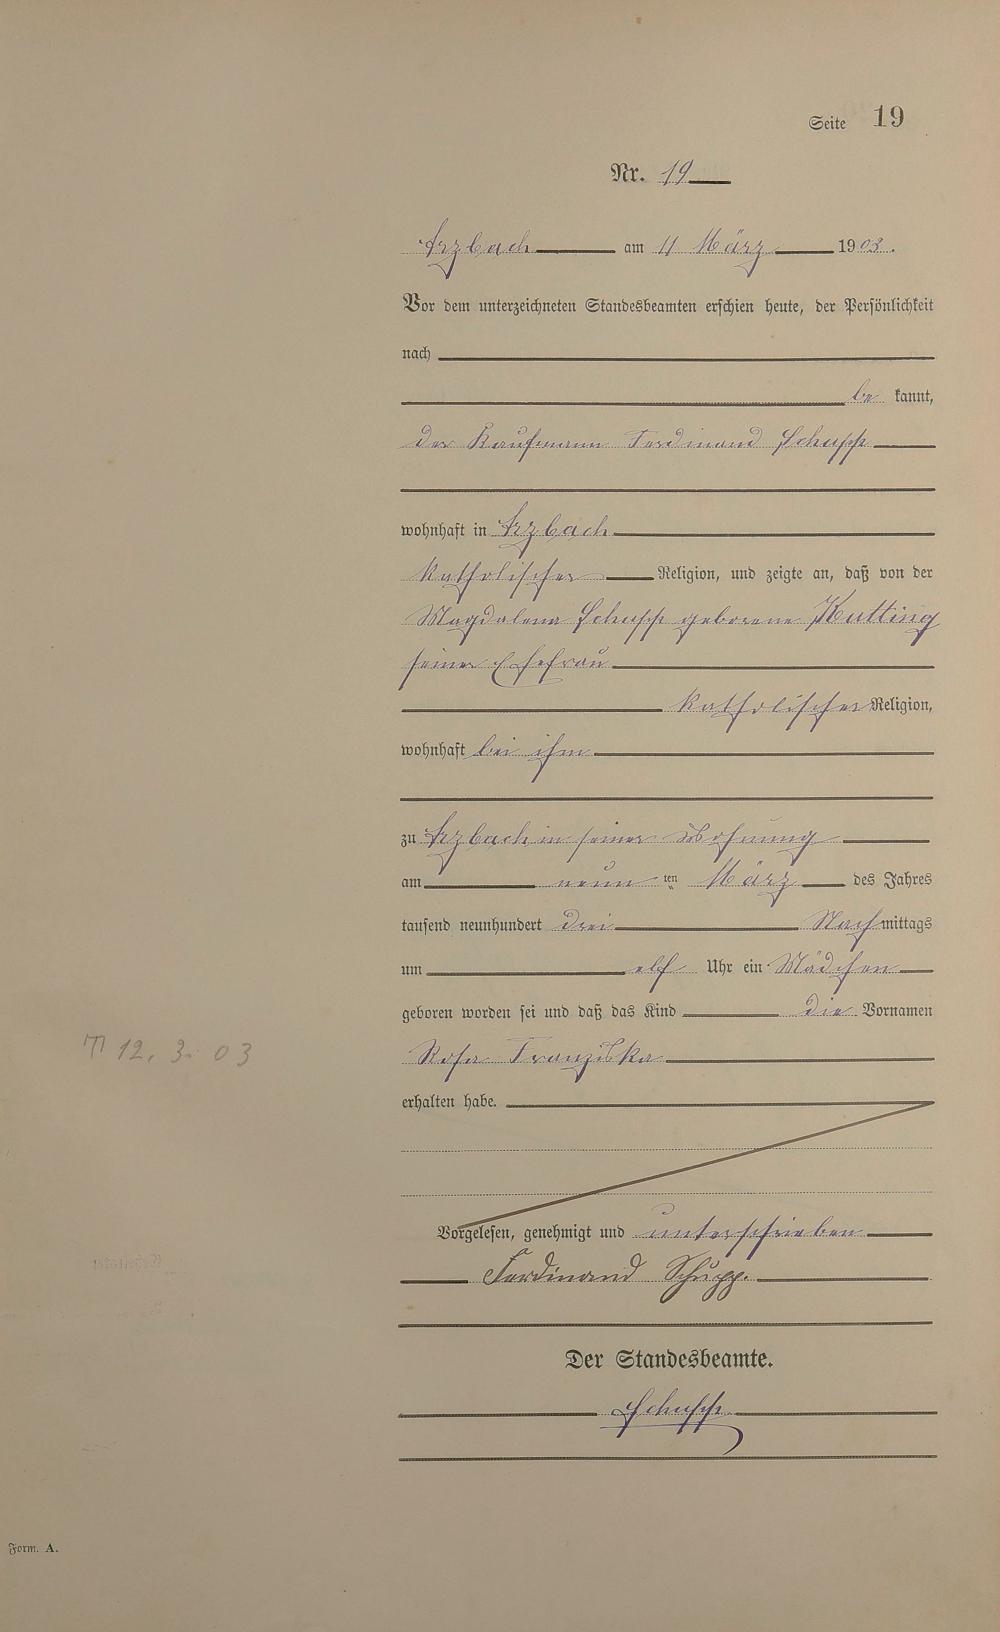 Seite 19
Nr. 19
Arzbach am 11 März 1903.
Vor dem unterzeichneten Standesbeamten erschien heute, der Persönlichkeit
nach
be kannt,
der Kaufmann Ferdinand Schupp
wohnhaft in Arzbach
katholischer Religion, und zeigte an, daß von der
Magdalena Schupp geborene Kutting
seiner Ehefrau
katholischer Religion,
wohnhaft bei ihm
zu Arzbach in seiner Wohnung
am neun ten März des Jahres
tausend neunhundert drei Nachmittags
um elf Uhr ein Mädchen
geboren worden sei und daß das Kind die Vornamen
T 12. 3. 03
Rosa Franziska
erhalten habe.
Vorgelesen, genehmigt und unterschrieben
Ferdinand Schupp.
Der Standesbeamte.
Schupp
Form. A.